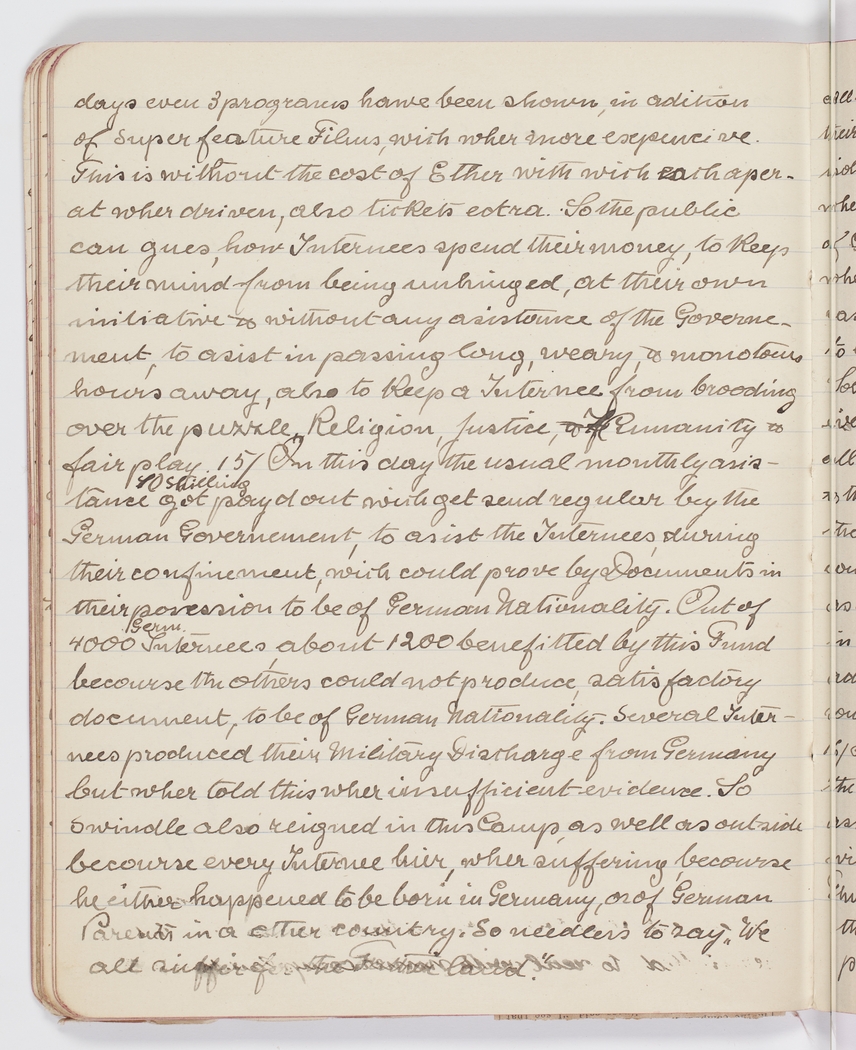 days even 3 programs hawe been shown, in adition
of Super feature Films, wich wher more expencive.
This is without the cost of Ether with wich each aper-
at wher driven, also tickets extra. So the public
can gues, how Internees spend their money, to keep
their mind from being unhinged, at their own
initiative & without any asistance of the Governe-
ment, to asist in passing long, weary, & monotous
hours away, also to keep a Internee from brooding
over the puzzle, "Religion, Justice, & Humanity &
fair play. 15/ On this day the usual monthly asis-
40 Shilling
tance got payd out wich get send regular by the
German Governement, to asist the Internees, during
their confinement, wich could prove by Documents in
their posession to be of German Nationality. Out of
Germ.
4000 Internees, about 1200 benefitted by this Fund
becourse the others could not produce, satisfactory
document, to be of German Nationality. Several Inter-
nees produced their Military Discharge from Germany
but wher told this wher insufficient evidence. So
Swindle also reigned in this Camp, as well as outside
becourse every Internee hier, wher suffering, becourse
he either happened to be born in Germany, or of German
Parents in a other country. So needless to say, "We
all suffer for the